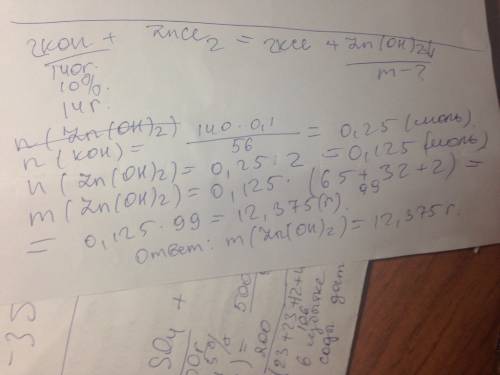 2KOH + ZnCl2 = 2KCl + Zn(OH)2↓
140г. m-?
10%.
14г.
n(Zn(OH)2)
n(KOH) = 140·0,1/56 = 0,25 (моль)
n(Zn(OH)2) = 0,25·2 = 0,125 (моль)
m(Zn(OH)2) = 0,125·(65+32+2) =
99
= 0,125·99 = 12,375(г).
Ответ: m(Zn(OH)2) = 12,375г.
-35
SO4 +
5%
) = 500
200
(23+23+12+4
106
в избытке
соды